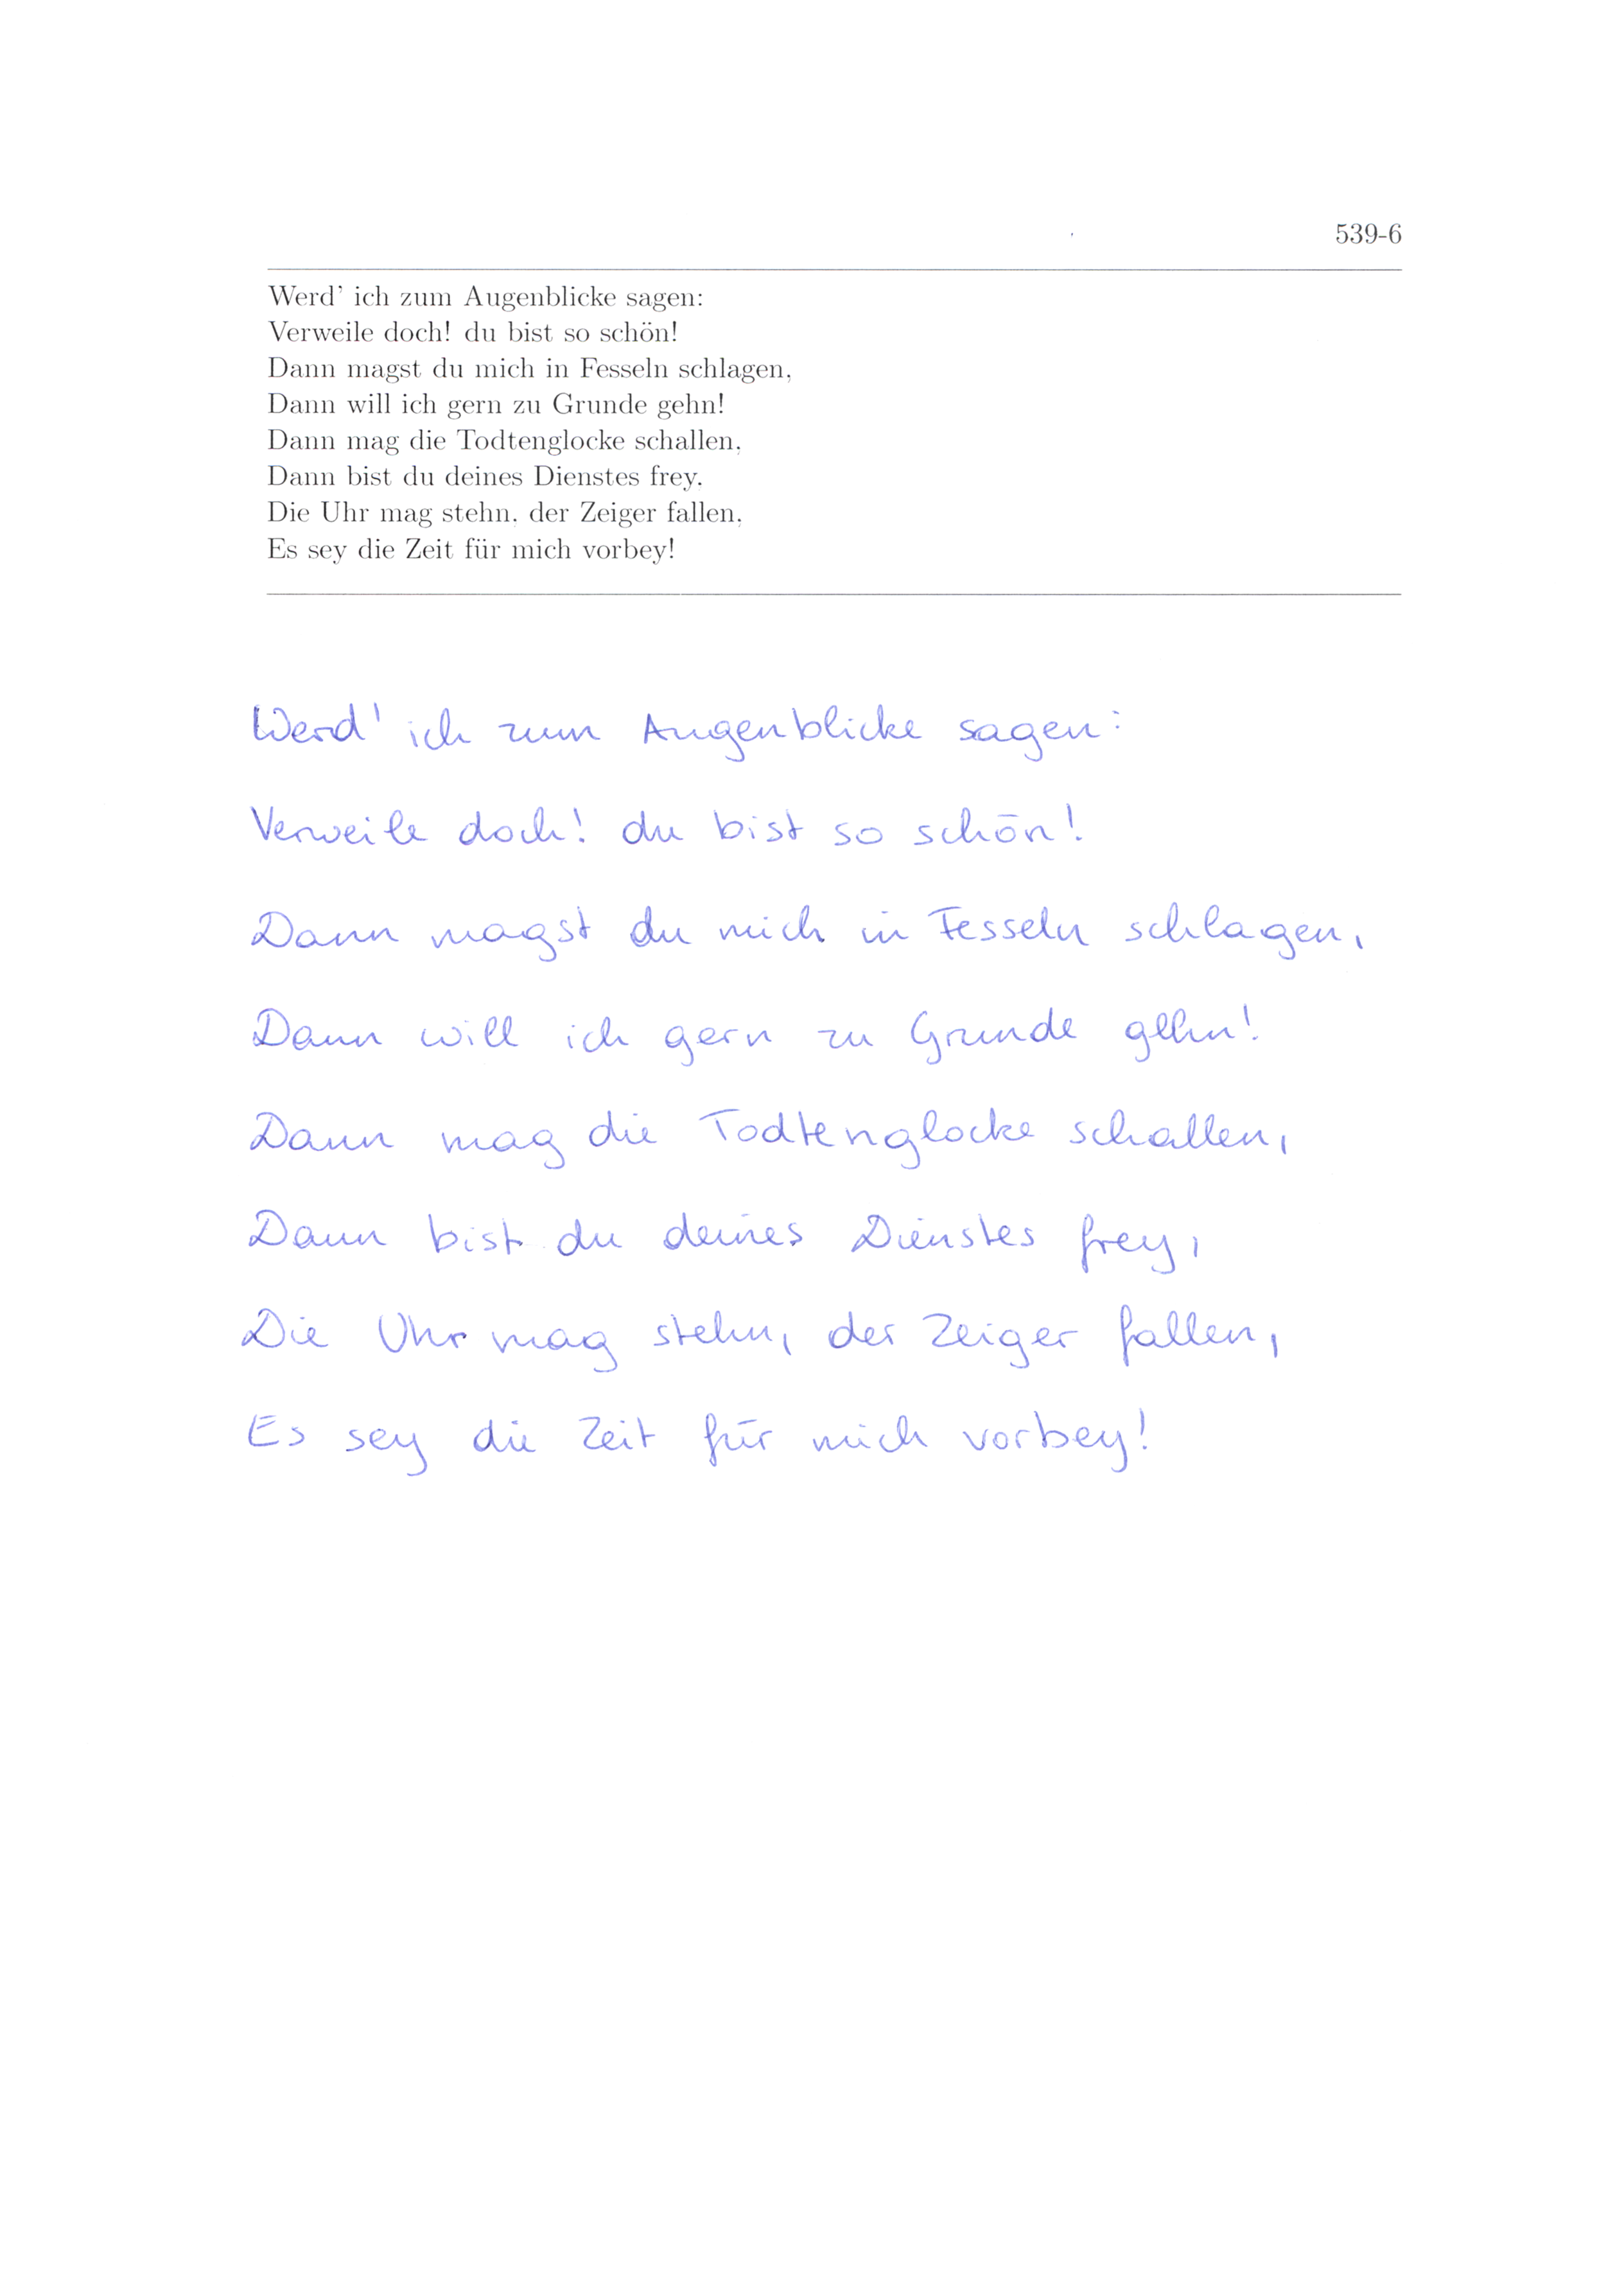 539-6
Werd' ich zum Augenblicke sagen:
Verweile doch! du bist so schön!
Dann magst du mich in Fesseln schlagen,
Dann will ich gern zu Grunde gehn!
Dann mag die Todtenglocke schallen,
Dann bist du deines Dienstes frey.
Die Uhr mag stehn, der Zeiger fallen,
Es sey die Zeit für mich vorbey!
Werd' ich zum Augenblicke sagen:
Verweile doch! du bist so schön!
Dann magst du mich in Fesseln schlagen,
Dann will ich gern zu Grunde gehn!
Dann mag die Todtenglocke schallen,
Dann bist du deines Dienstes frey,
Die Uhr mag stehn, der Zeiger fallen,
Es sey die Zeit für mich vorbey!